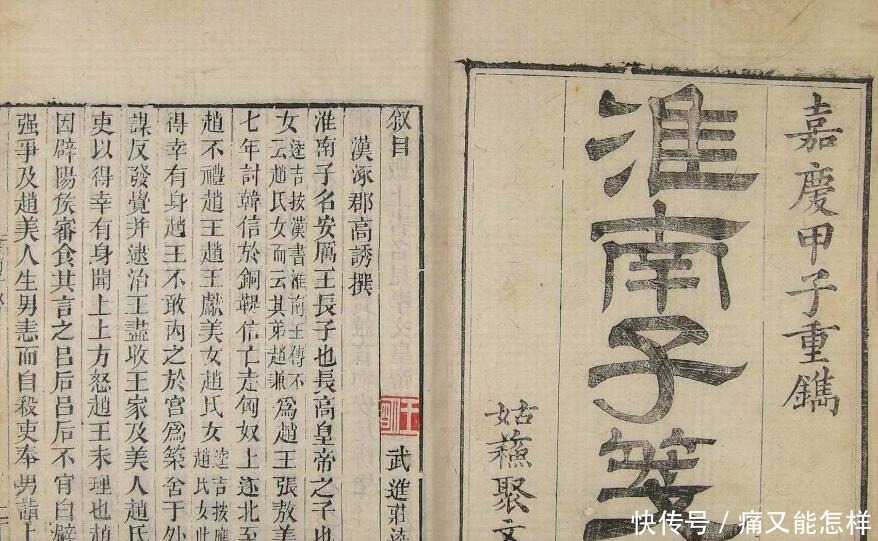 嘉慶甲子重鐫
淮南子箋
姑蘇聚文
叙目
漢涿郡高誘撰
武進莊逵
淮南子名安厲王長子也長高皇帝之子也
女逵吉按漢書淮南王傳不云趙氏女而云其弟趙兼爲趙王張敖美
七年討韓信於銅鞮信亡走匈奴上遂北
趙不禮趙王趙王獻美女趙氏女逵吉按應趙氏女此
得幸有身趙王不敢内之於宮爲築舍于外
謀反發覺并逮治王盡收王家及美人趙氏
吏以得幸有身聞上上方怒趙王未理也趙
因辟陽矦審食其言之呂后呂后不肯白辟
强爭及趙美人生男恚而自殺吏奉男詣上
快传号/痛又能怎样